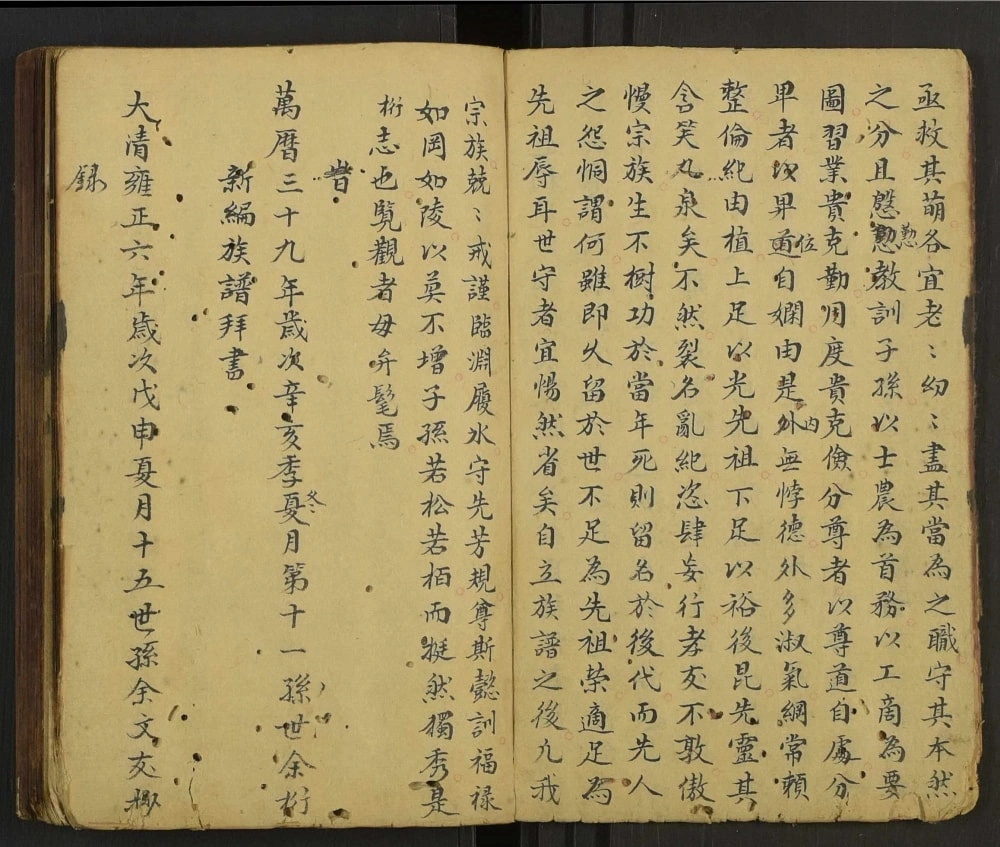 亟救其萌各宜老〻幼〻盡其當為之職守其本然
之分且慇懃教訓子孫以士農為首務以工啇為要
圖習業貴克勤用度貴克儉分尊者以尊道自處分
卑者以卑位自嫻由是外內無悖德外多淑氣綱常賴
整倫紀由植上足以光先祖下足以裕後昆先靈其
含笑九泉矣不然裂名亂紀恣肆妄行孝友不敦傲
慢宗族生不樹功於當年死則留名於後代而先人
之怨恫謂何雖即久留於世不足為先祖榮適足為
先祖辱耳世守者宜惕然省矣自立族譜之後凡我
宗族兢〻戒謹臨淵履氷守先芳規尊斯懿訓福禄
如岡如陵以莫不增子孫若松若栢而挺然獨秀是
桁志也覧觀者毋弁髦焉
昔
萬曆三十九年歲次辛亥季冬月第十一孫世余桁
新編族譜拜書
大清雍正六年歲次戊申夏月十五世孫余文友抄
録